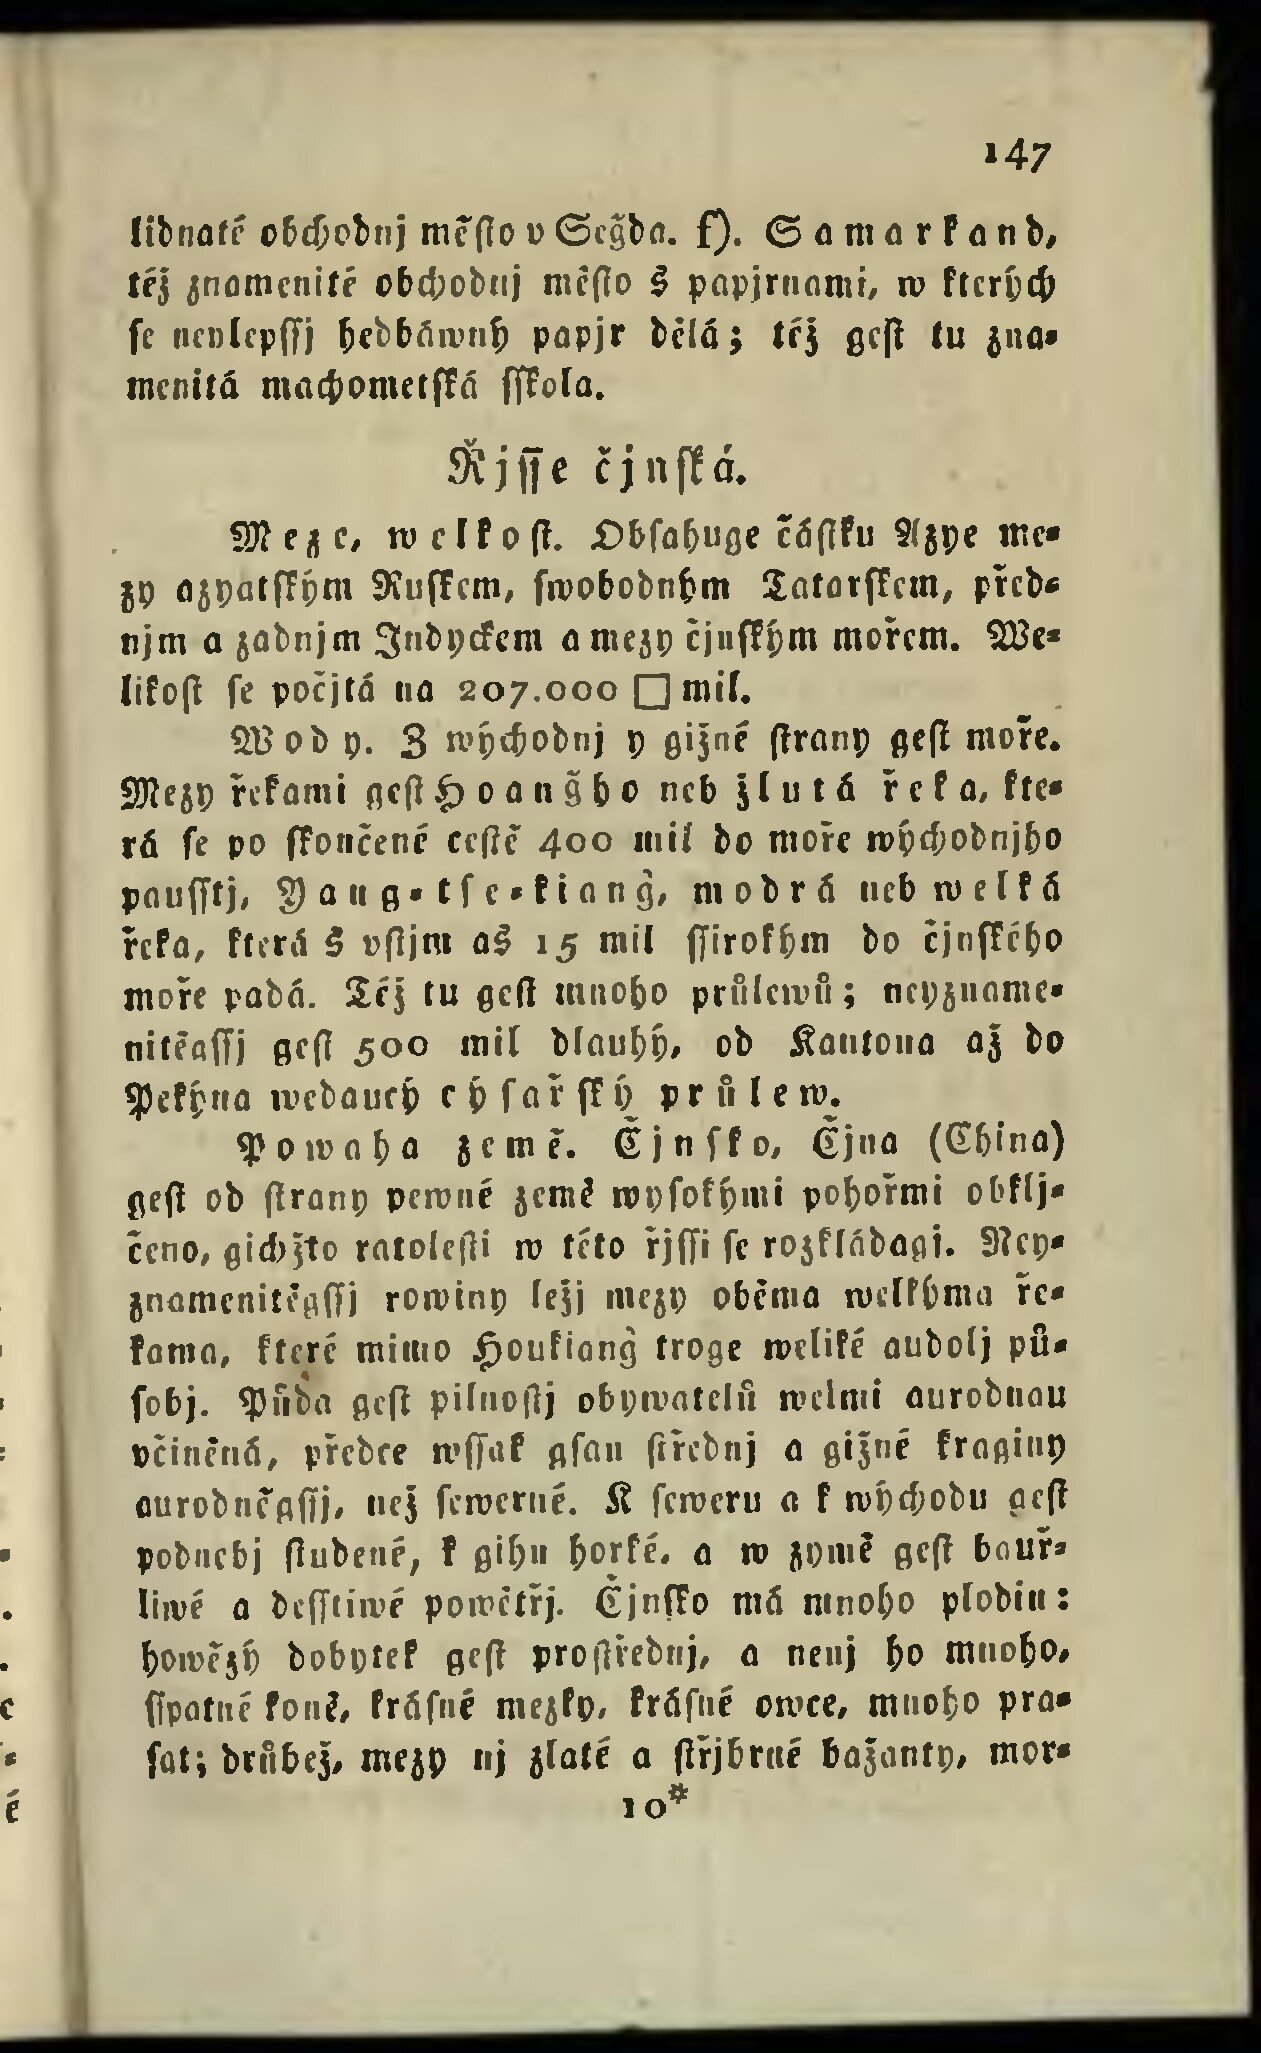 147
lidnaté obchodnj město v Seğda. f). Samarkand,
též znamenité obchodnj město s papjrnami, w kterých
se neylepssj hedbáwný papjr dělá; též gest tu zna-
menitá machometská sskola.
Řjsse čjnská.
Meze, welkost. Obsahuge částku Azye me-
zy azyatským Ruskem, swobodným Tatarskem, před-
njm a zadnjm Jndyckem a mezy čjnským mořem. We-
likost se počjtá na 207.000 □ mil.
Wody. Z wýchodnj y gižné strany gest moře.
Mezy řekami gest Hoanğho neb žlutá řeka, kte-
rá se po skončené cestě 400 mil do moře wýchodnjho
pausstj, Yang-tse-kianğ, modrá neb welká
řeka, která s vstjm as 15 mil ssirokým do čjnského
moře padá. Též tu gest mnoho průlewů; neyzname-
nitěgssj gest 500 mil dlauhý, od Kantona až do
Pekýna wedaucý cýsařský průlew.
Powaha země. Čjnsko, Čjna (China)
gest od strany pewné země wysokými pohořmi obklj-
čeno, gichžto ratolesti w této řjssi se rozkládagj. Ney-
znamenitěgssj rowiny ležj mezy oběma welkýma ře-
kama, které mimo Houkianğ troge weliké audolj pů-
sobj. Půda gest pilnostj obywatelů welmi aurodnau
včiněná, předce wssak gsau střednj a gižné kraginy
aurodněgssj, než sewerné. K seweru a k wýchodu gest
podnebj studené, k gihu horké, a w zymě gest bauř-
liwé a desstiwé powětřj. Čjnsko má mnoho plodin:
howězý dobytek gest prostřednj, a nenj ho mnoho,
sspatné koně, krásné mezky, krásné owce, mnoho pra-
sat; drůbež, mezy nj zlaté a střjbrné bažanty, mor-
10*